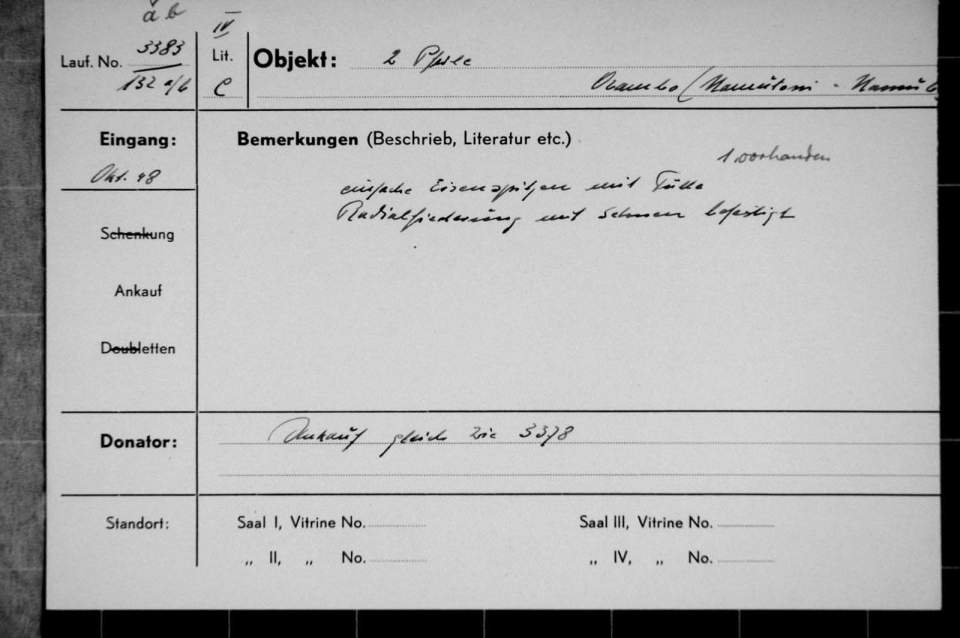 a b
Lauf. No. 3383
132 a/b
IV
Lit.
C
Objekt: 2 Pfeile
Ovambo (Namutoni -
Eingang:
Okt. 48
Bemerkungen (Beschrieb, Literatur etc.)
1 vorhanden
einfache Eisenspitzen mit Tülle
Radialfiederung mit Sehnen befestigt
Schenkung
Ankauf
Doubletten
Donator: Ankauf gleich wie 3378
Standort: Saal I, Vitrine No. Saal III, Vitrine No.
„ II, „ No. „ IV, „ No.